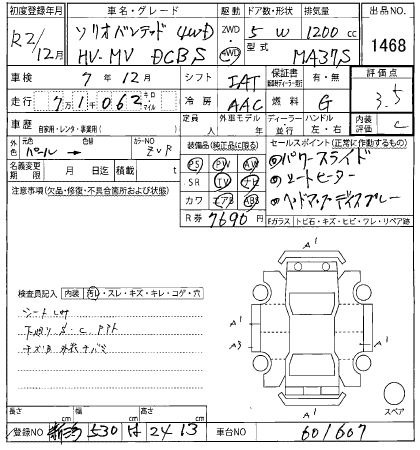 初度登録年月 車名・グレード 駆動 ドア数・形状 排気量 出品NO
R2/12月 ソリオバンディット 4WD 2WD 4WD 5 W 1200 cc 1468
HV-MV DCBS 型式 MA37S
車検 7年12月 シフト IAT 保証書 有・無 評価点
走行 7万1千062 キロ マイル 冷房 AAC 燃料 G 3.5
車歴 自家用・レンタ・事業用( ) 定員 人 外車モデル 年 ディーラー 並行 ハンドル 左・右 内装評価 C
外色 元色 パール → 色替 カラーNO ZVR 装備品(純正品に限る) セールスポイント(正常に作動するもの)
名義変更期限 月 日迄 積載 t PS PW AW ①パワースライド
注意事項(欠品・修復・不具合箇所および状態) SR TV ナビ ②シートヒーター
カワ エアB ABS ③ヘッドアップディスプレー
R券 7690 円 Fガラス トビ石・キズ・ヒビ・ワレ・リペア跡
検査員記入 内装 汚れ・スレ・キズ・キレ・コゲ・穴
A1
A1 A1
A3
A1
スペア
長さ cm 幅 cm 高さ cm
登録NO 新潟 530 は 2413 車台NO 601607